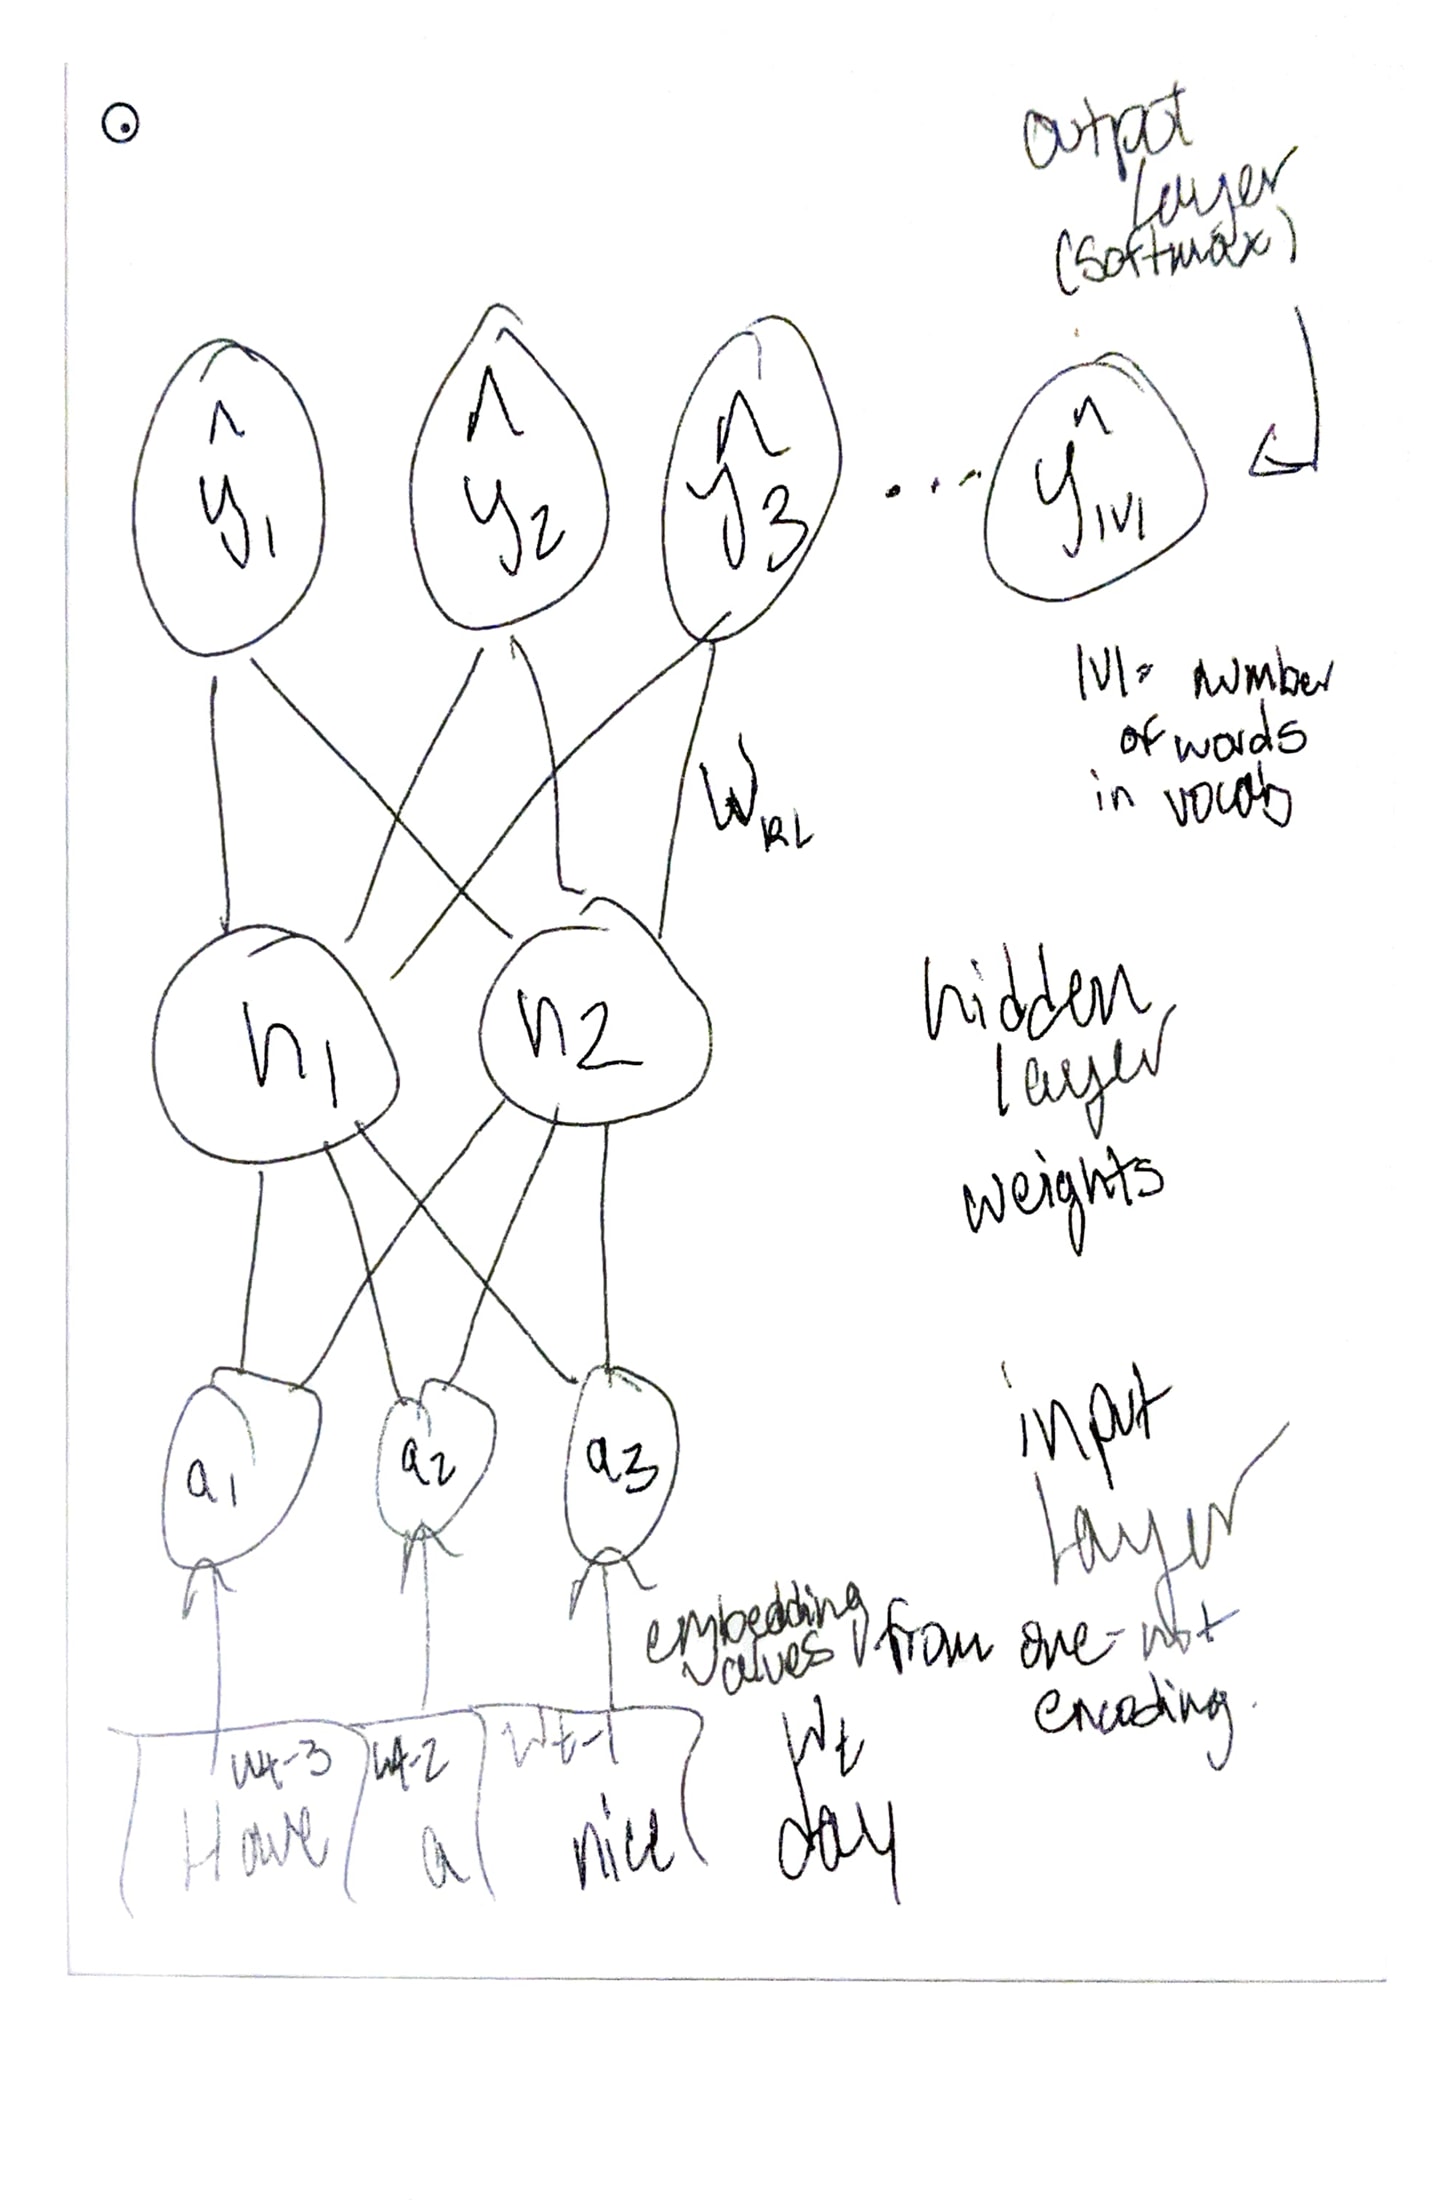 output
layer
(softmax)
ŷ1
ŷ2
ŷ3
...
ŷ|V|
|V| = number
of words
in vocab
W
h1
h2
hidden
layer
weights
a1
a2
a3
input
layer
embedding
values from one-hot
encoding.
wt-3
wt-2
wt-1
wt
Have
a
nice
day